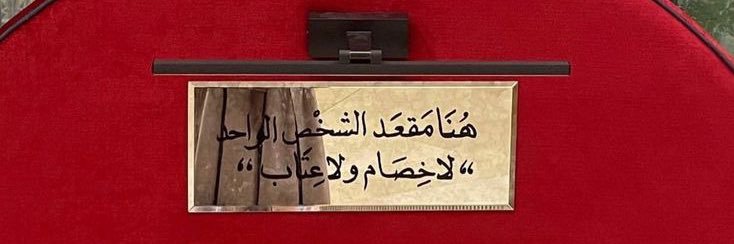 هُنَا مَقعَد الشخْص الواحد
“لا خِصَام ولا عِتَاب“